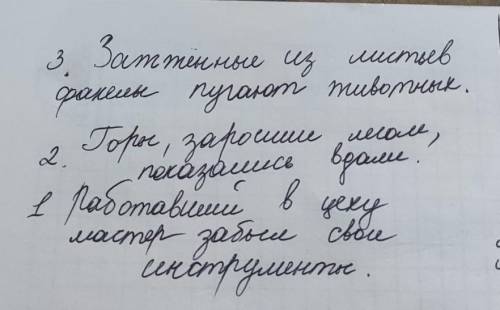 3. Зажжённые из листьев
факелы пугают животных.
2. Горы, заросшие лесом,
показались вдали.
1 Работавший в цеху
мастер забыл свои
инструменты.